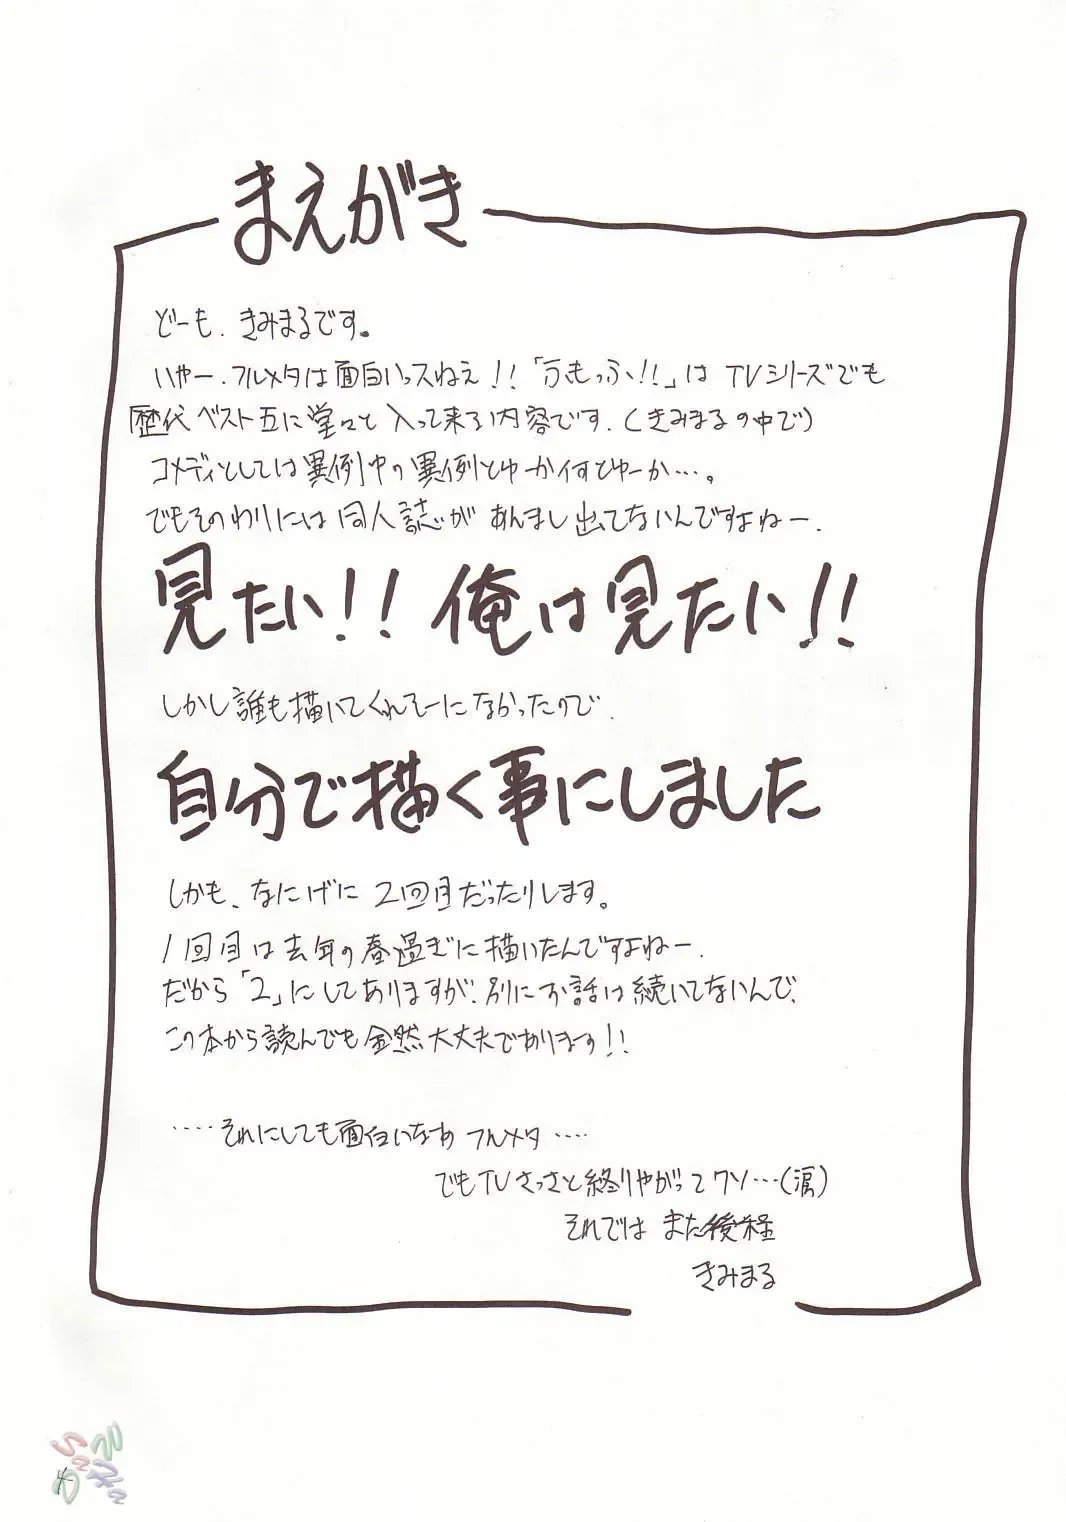 まえがき
どーも、きみまるです。
いやー、フルメタは面白いっスねえ!!「ふもっふ!!」はTVシリーズでも
歴代ベスト五に堂々と入って来る内容です、(きみまるの中で)
コメディとしては異例中の異例とゆーか何すとゆーか…。
でもそのわりには同人誌があんまし出てないんですよねー、
見たい!!俺は見たい!!
しかし誰も描いてくれそーになかったので、
自分で描く事にしました
しかも、なにげに2回目だったりします。
1回目は去年の春過ぎに描いたんですよねー、
だから「2」にしてありますが、別にお話は続いてないんで、
この本から読んでも全然大丈夫であります!!
‥‥それにしても面白いなあフルメタ‥‥
でもTVさっさと終りやがってクソ…(涙)
それでは また後程
きみまる
4